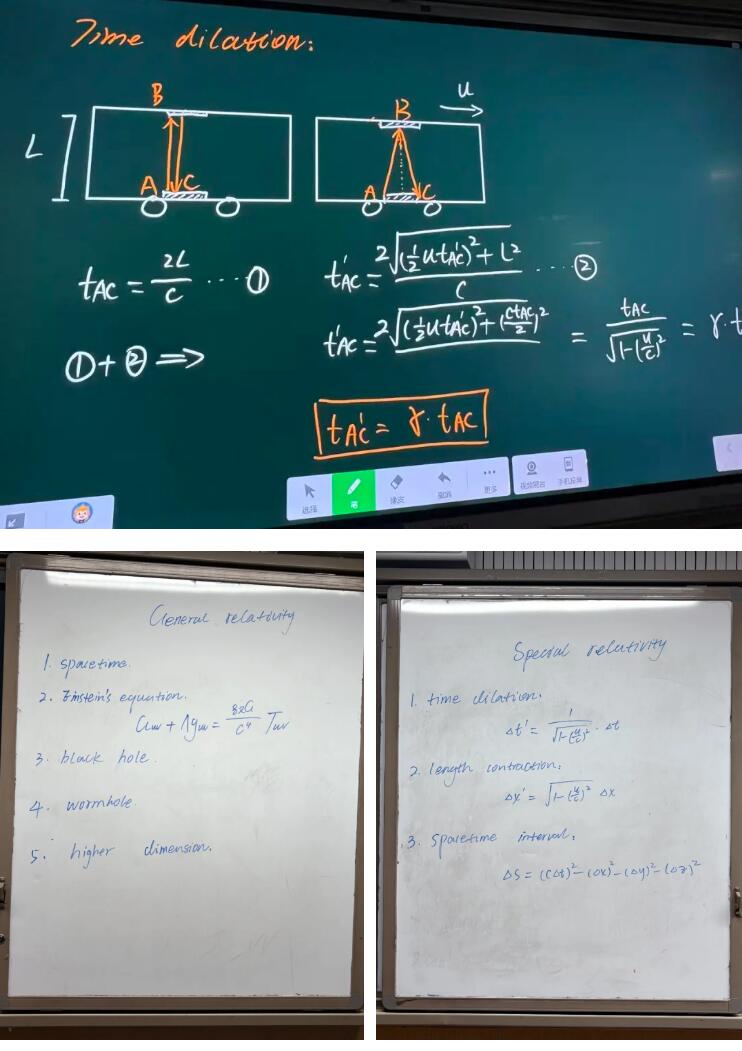 Time dilation:
B
B
u
L
A
C
A
C
tAC = 2L/C ····①
t'AC = 2√((½u·t'AC)²+L²)/C ····②
①+②⇒
t'AC = 2√((½u·t'AC)²+(ctAC/2)²) = tAC/√(1-(u/c)²) = γ·t
t'AC = γ·tAC
选择
笔
橡皮
撤销
更多
视频展台
General relativity
1. spacetime.
2. Einstein's equation.
Guv + Λguv = 8πG/c⁴ Tuv
3. black hole.
4. wormhole.
5. higher dimension.
Special relativity
1. time dilation:
Δt' = 1/√(1-(u/c)²) · Δt
2. length contraction:
Δx' = √(1-(u/c)²) Δx
3. Spacetime interval:
ΔS = (cΔt)²-(Δx)²-(Δy)²-(Δz)²